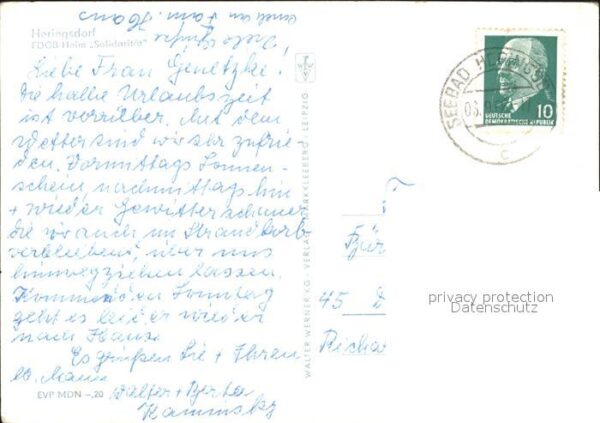 Heringsdorf
FDGB-Heim „Solidarität"
auch an Fam. Hans
Viele Grüße
Liebe Frau Genetzke!
Die halbe Urlaubszeit
ist vorrüber. Mit dem
Wetter sind wir zufrie-
den. Vormittags Sonnen-
schein, nachmittags hin
+ wieder Gewitterschauer
die wir auch im Strandkorb
verbleibend, über uns
hinwegziehen lassen.
Kommenden Sonntag
geht es leider wieder
nach Hause
Es grüßen Sie + Ihren
lb. Mann
Walter + Berta
Kaminsky
EVP MDN –,20
WALTER WERNER KG · VERLAG · MARKKLEEBERG · LEIPZIG
SEEBAD HERINGSD
c
10
DEUTSCHE
DEMOKRATISCHE REPUBLIK
F
Für
45 D
Richa
privacy protection
Datenschutz